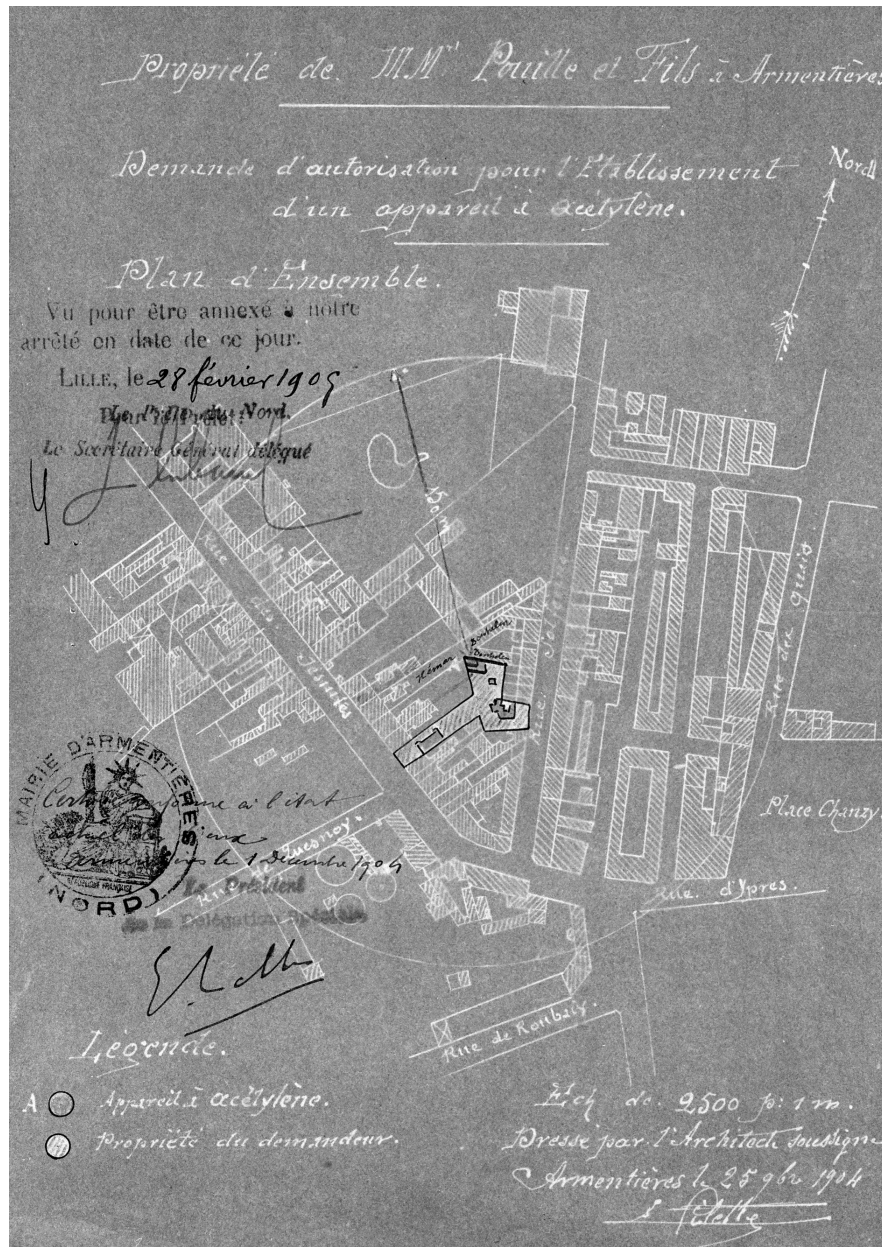 Propriété de MM<sup>rs</sup> Pouille et Fils à Armentières
Demande d'autorisation pour l'Etablissement
d'un appareil à acétylène.
Nord
Plan d'Ensemble.
Vu pour être annexé à notre
arrêté en date de ce jour.
LILLE, le 28 février 1905
Le Préfet du Nord.
Pour le Préfet:
Le Secrétaire Général délégué
150 m
Rue des Jésuites
Rue
Rue des Quais
Place Chanzy.
Rue d'Ypres.
Quesnoy.
Rue de Roubaix.
MAIRIE D'ARMENTIÈRES
(NORD)
Certifié conforme à l'état
actuel des lieux
Armentières le 1 Décembre 1904
Le Président
de la Délégation Spéciale
Légende.
A Appareil à acétylène.
Propriété du demandeur.
Ech de 2500 p: 1 m.
Dressé par l'Architecte soussigné
Armentières le 25 9bre 1904